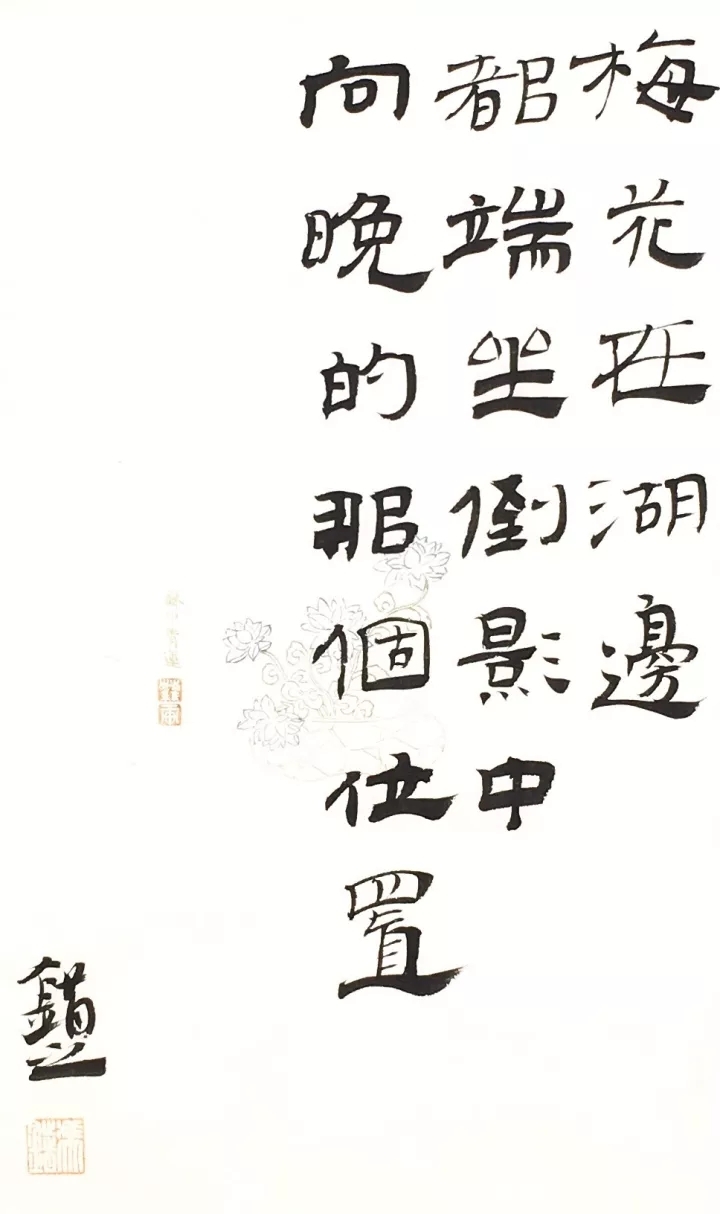 梅花在湖邊
都端坐倒影中
向晚的那個位置